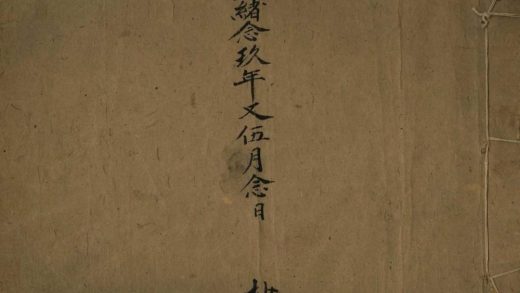 緒念玖年又伍月念日